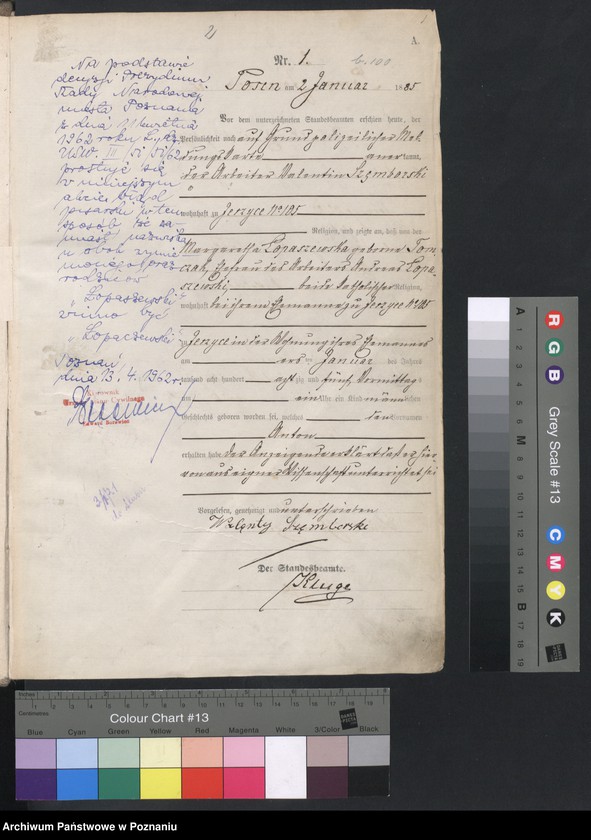 2
1
A.
Nr. 1.
Posen am 2 Januar 1885
Vor dem unterzeichneten Standesbeamten erschien heute, der
Persönlichkeit nach auf Grund polizeilicher Mel
dungskarte anerkannt,
der Arbeiter Valentin Szymborski
wohnhaft zu Jerzyce No 105
Religion, und zeigte an, daß von der
Margaretha Lopaszewska geborne Tom
czak, Ehefrau des Arbeiters Andreas Lopa
szewski, beide katholischer Religion,
wohnhaft bei ihrem Ehemanne zu Jerzyce No 105
zu Jerzyce in der Wohnung ihres Ehemannes
am ersten Januar des Jahres
tausend acht hundert achtzig und fünf Vormittag
um ein Uhr ein Kind männ
Geschlechts geboren worden sei, welches den Vornamen
Anton
erhalten habe. Der Anzeigende erklärt daß er hier
von aus eigner Wissenschaft unterrichtet sei
Vorgelesen, genehmigt und unterschrieben
Walenty Szymborski
Der Standesbeamte.
Kluge
Na podstawie
decyzji Prezydium
Rady Narodowej
miasta Poznania
z dnia 11 kwietnia
1962 roku
prostuje się
w niniejszym
akcie błąd
pisarski w ten
sposób, że za
miast nazwiska
rodziców
"Łopaszewski"
winno być
"Łopaczewski"
Poznań,
dnia 13. 4. 1962 r.
Kierownik
Urzędu Stanu Cywilnego
Inches
Centimetres
Colour Chart #13
Blue
Cyan
Green
Yellow
Red
Magenta
White
3/Color
Black
Grey Scale #13
R
G
B
C
M
Y
K
A 1 2 3 4 5 6 M 8 9 10 11 12 13 14 15 B 17 18 19
Archiwum Państwowe w Poznaniu